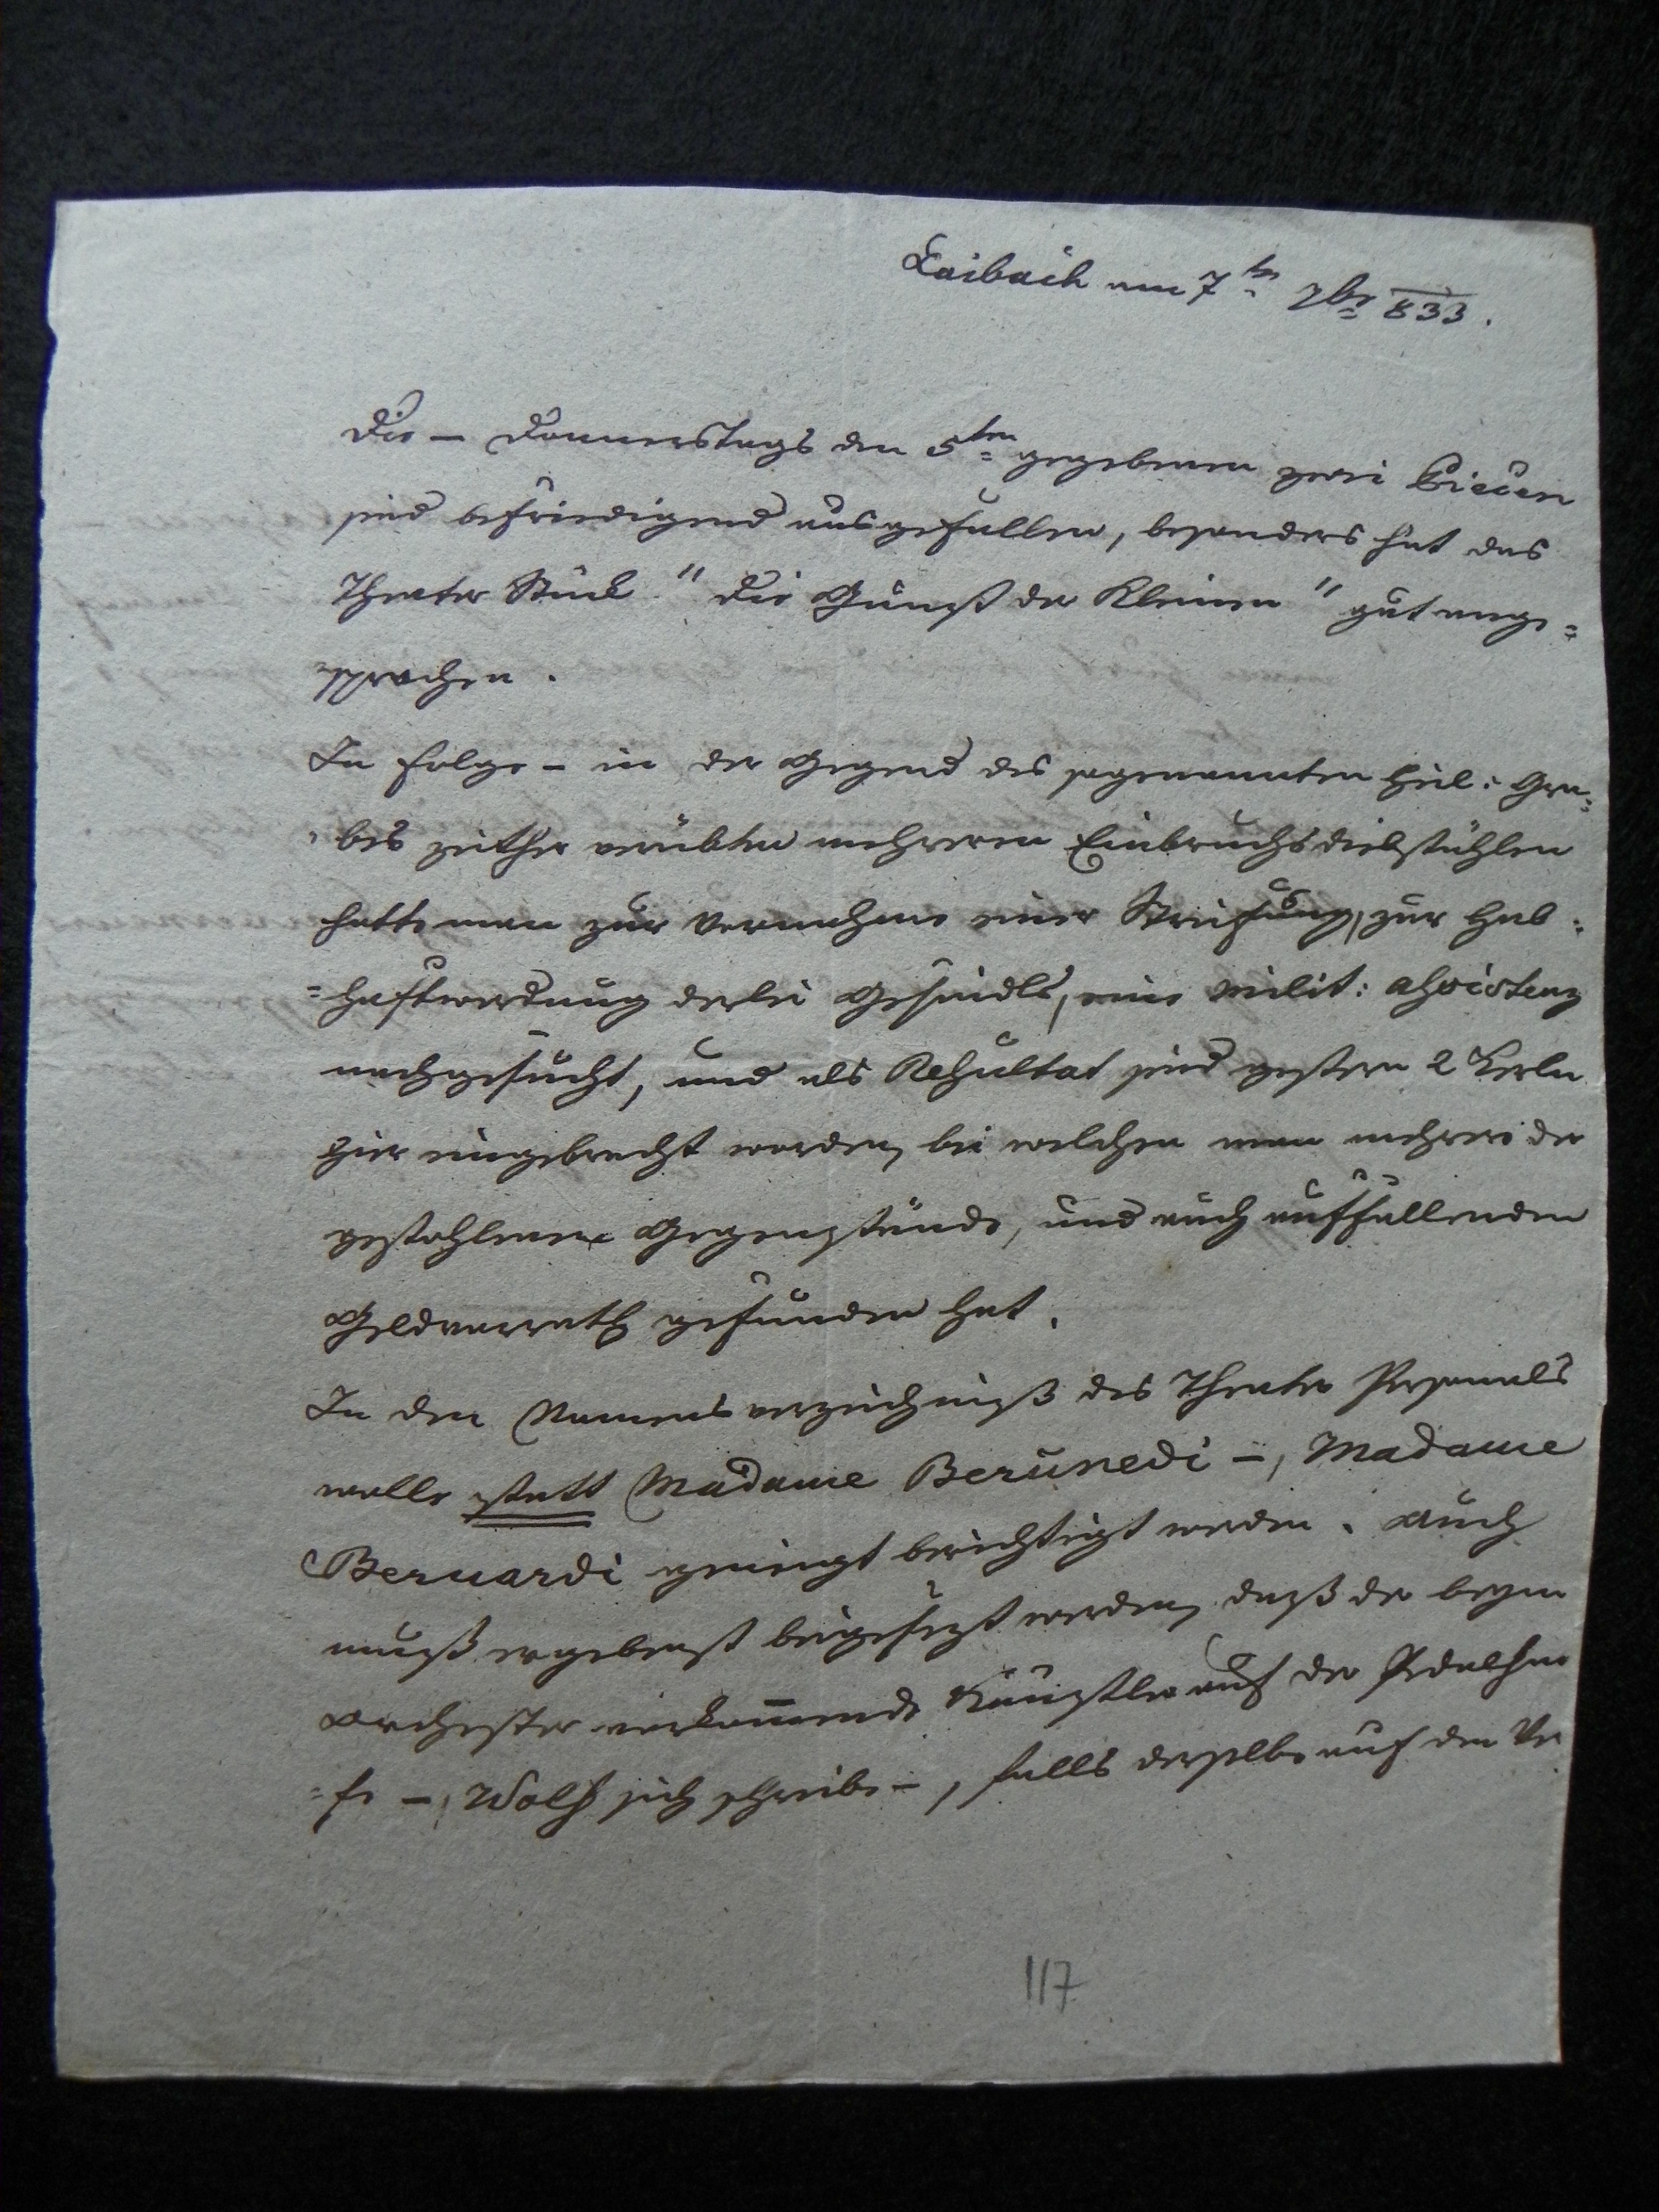 Laibach am 7ten 7br 833.
Die – Donnerstags den 5ten gegebenen zwei Piecen
sind befriedigend ausgefallen, besonders hat das
Theater Stück " Die Gunst der Kleinen " gut ange=
sprochen.
In Folge – in der Gegend des sogenannten heil: Gra=
=bes zeither verübten mehreren Einbruchsdiebstählen
hatte man zur Vornahme einer Streifung, zur Hab=
=haftwerdung derlei Gesindls, eine milit: Assistenz
nachgesucht, und als Resultat sind gestern 2 Kerln
hier eingebracht worden, bei welchen man mehrere der
gestohlenen Gegenstände, und auch auffallenden
Geldvorrath gefunden hat.
In dem Namensverzeichniß des Theater Personals
wolle statt Madame Berunedi –, Madame
Bernardi geneigt berichtigt werden. Auch
muß ergebenst beigesezt werden, daß der beym
Orchester vorkommende Künstler auf der Pedalhar
=fe –, Wolf sich schreibe –, falls derselbe auf dem Ve
117